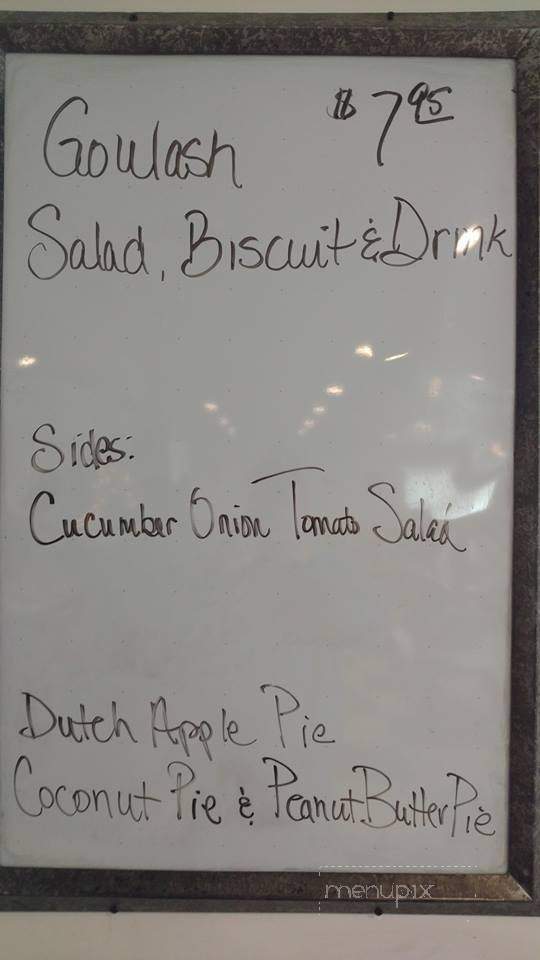 Goulash $7.95
Salad, Biscuit & Drink
Sides:
Cucumber Onion Tomato Salad
Dutch Apple Pie
Coconut Pie & Peanut Butter Pie
menupix